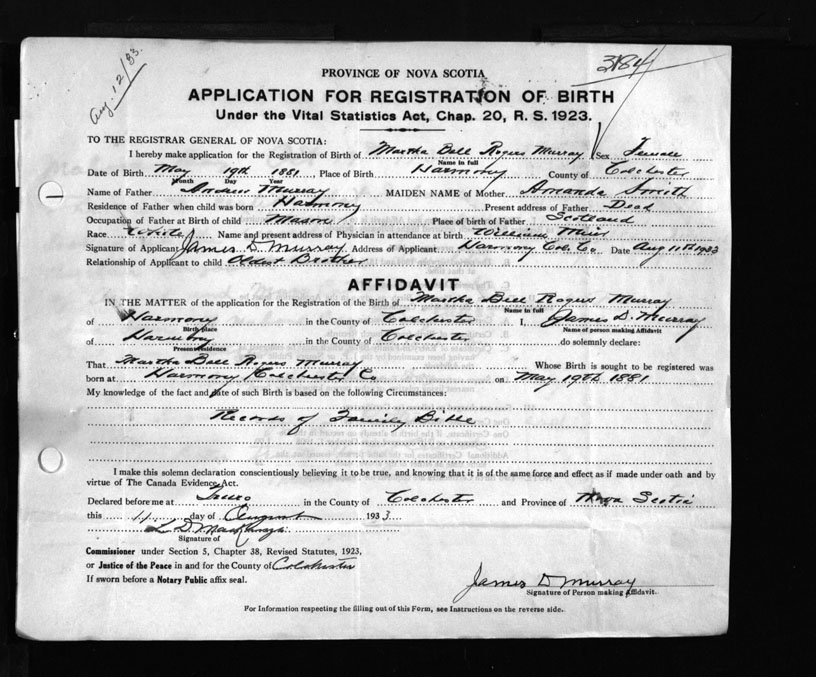 Aug. 12/33.
3184
PROVINCE OF NOVA SCOTIA
APPLICATION FOR REGISTRATION OF BIRTH
Under the Vital Statistics Act, Chap. 20, R. S. 1923.
TO THE REGISTRAR GENERAL OF NOVA SCOTIA:
I hereby make application for the Registration of Birth of Martha Bell Rogers Murray Sex Female
Name in full
Date of Birth May 19th 1881 Place of Birth Harmony County of Colchester
Month Day Year
Name of Father Andrew Murray MAIDEN NAME of Mother Amanda Smith
Residence of Father when child was born Harmony Present address of Father Dead
Occupation of Father at Birth of child Mason Place of birth of Father Scotland
Race White Name and present address of Physician in attendance at birth William Muir
Signature of Applicant James D. Murray Address of Applicant Harmony Col. Co. Date Aug 11th 1933
Relationship of Applicant to child Oldest Brother
AFFIDAVIT
IN THE MATTER of the application for the Registration of the Birth of Martha Bell Rogers Murray
Name in full
of Harmony in the County of Colchester I, James D. Murray
Birth place Name of person making Affidavit
of Harmony in the County of Colchester do solemnly declare:
Present residence
That Martha Bell Rogers Murray Whose Birth is sought to be registered was
born at Harmony Colchester Co on May 19th 1881
My knowledge of the fact and date of such Birth is based on the following Circumstances:
Records of Family Bible
I make this solemn declaration conscientiously believing it to be true, and knowing that it is of the same force and effect as if made under oath and by
virtue of The Canada Evidence Act.
Declared before me at Truro in the County of Colchester and Province of Nova Scotia
this 11 day of August 1933
Signature of
Commissioner under Section 5, Chapter 38, Revised Statutes, 1923,
or Justice of the Peace in and for the County of Colchester
If sworn before a Notary Public affix seal.
James D Murray
Signature of Person making Affidavit.
For Information respecting the filling out of this Form, see Instructions on the reverse side.